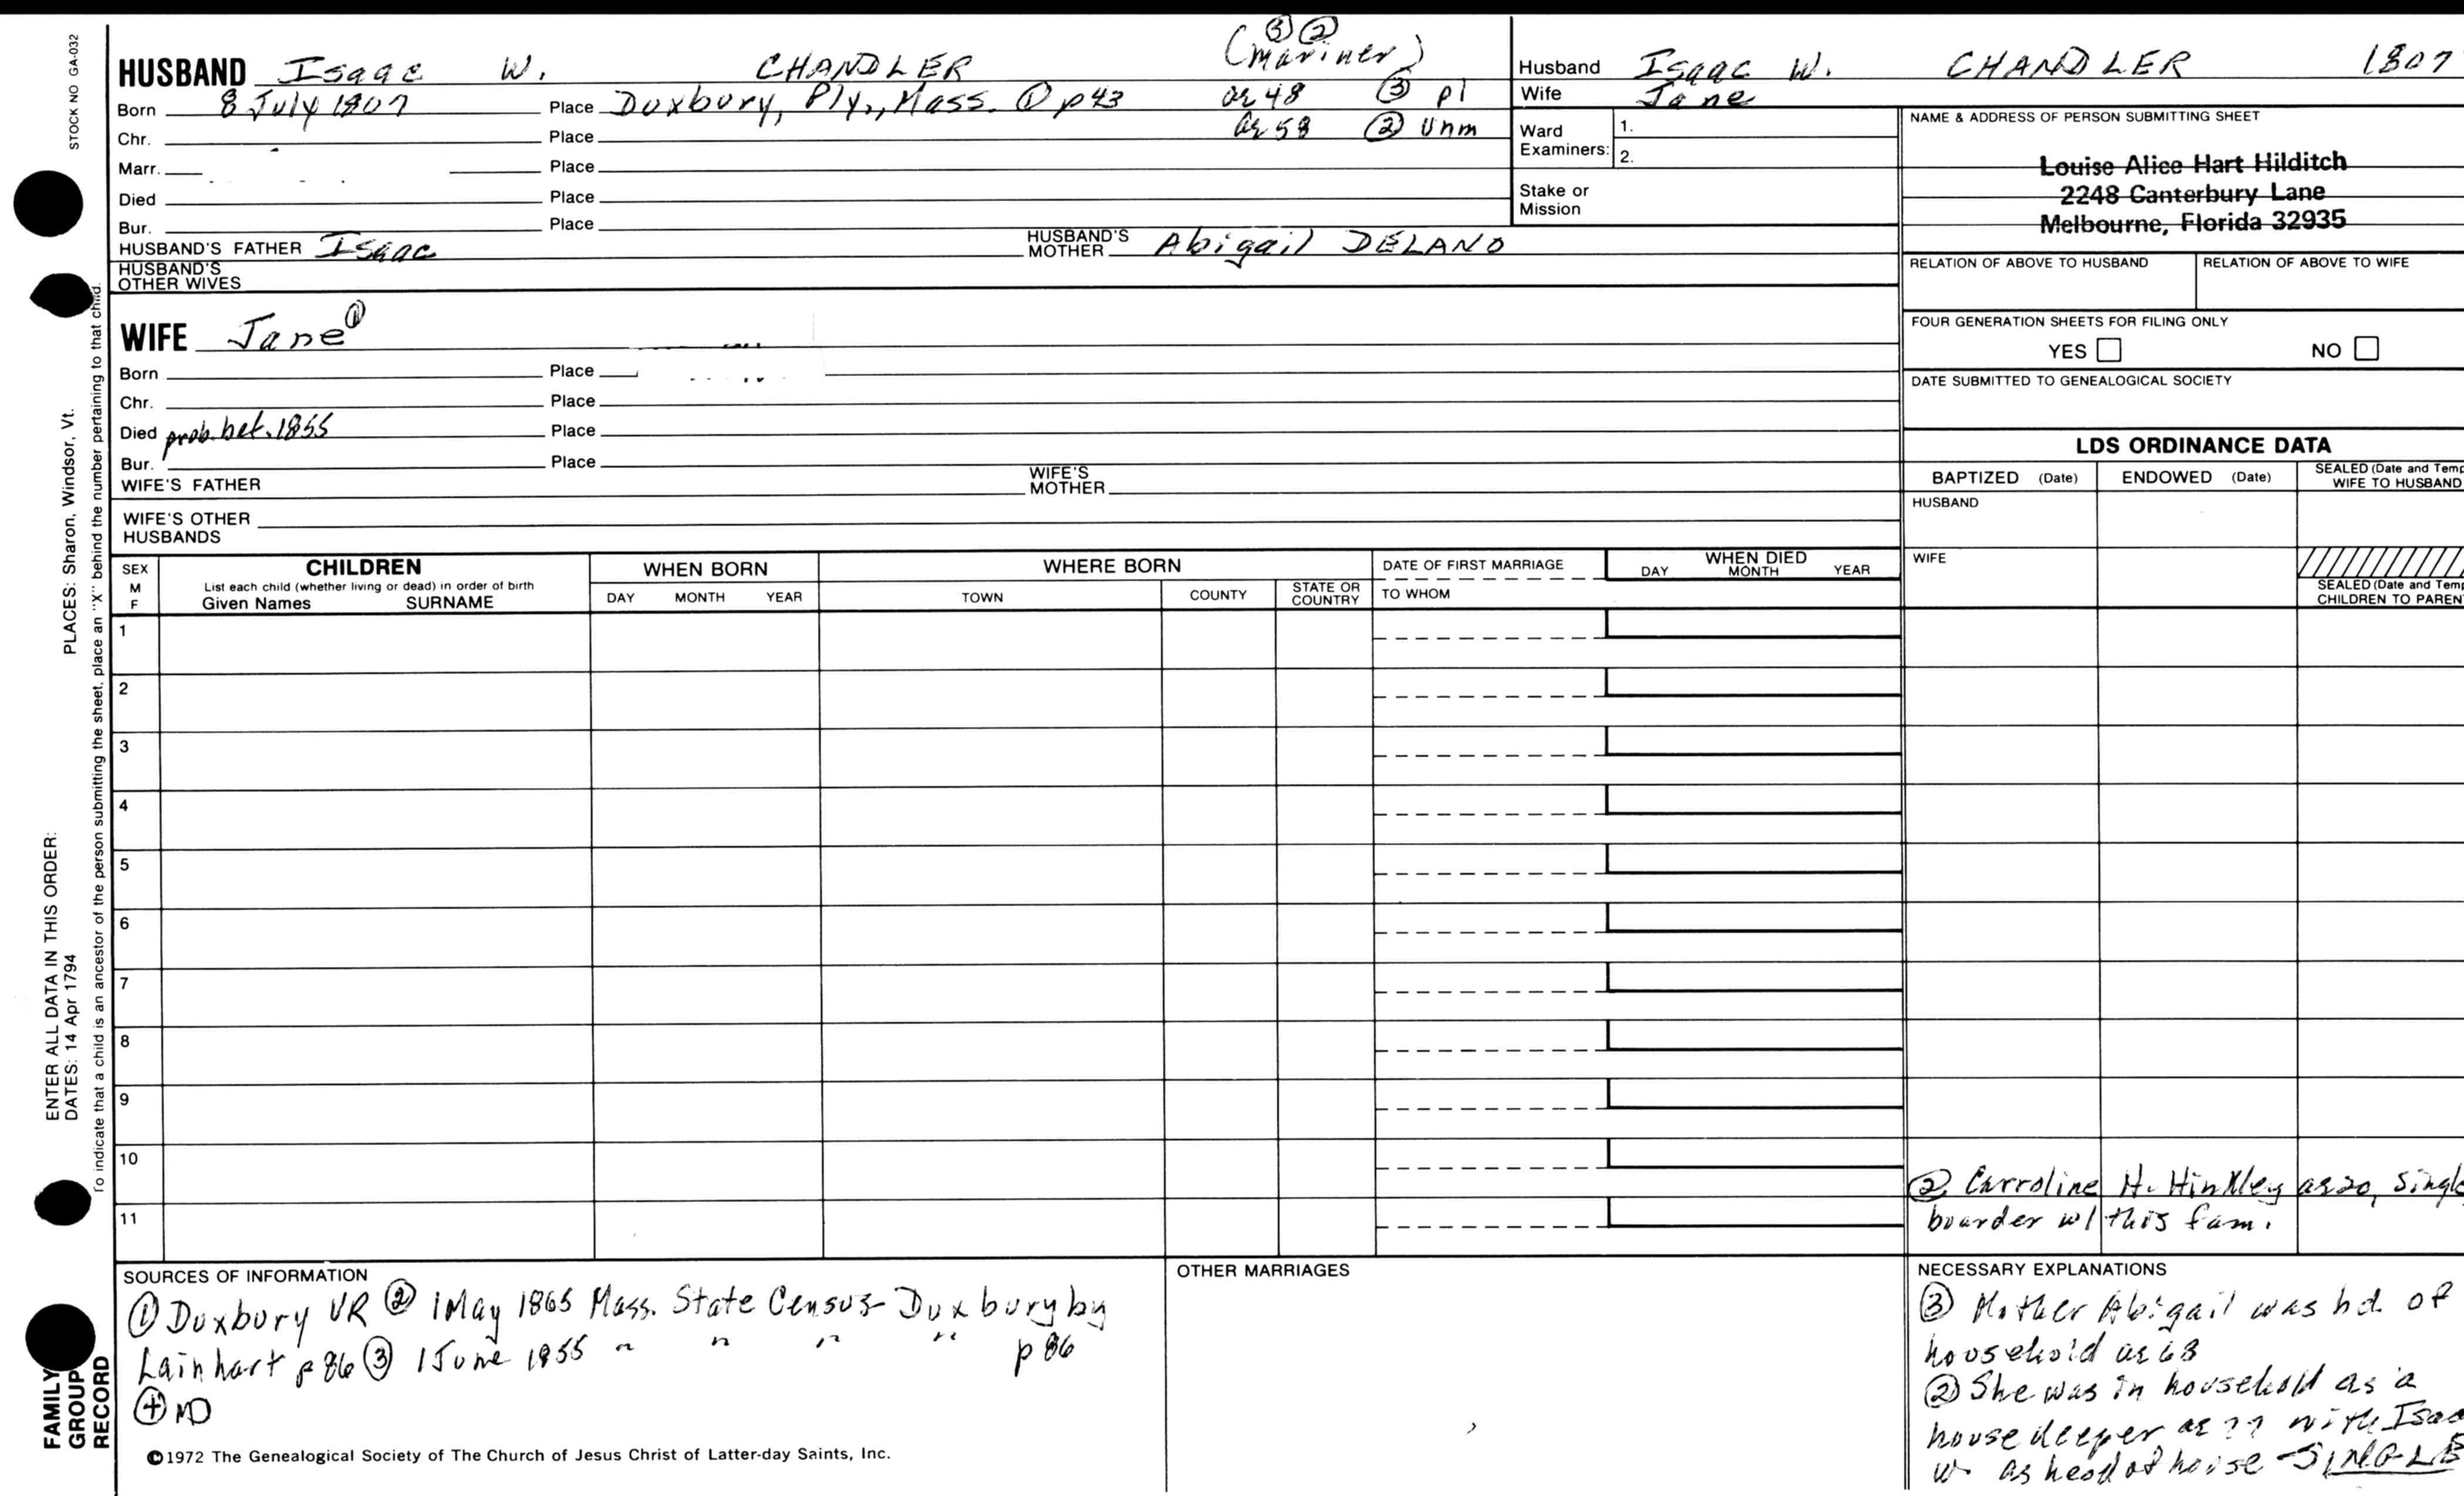 STOCK NO GA-032
HUSBAND Isaac W. CHANDLER (mariner) ③ ②
Born 8 July 1807 Place Duxbury, Ply., Mass. ① p43 ae 48 ③ p1
Chr. Place ae 58 ② Unm
Marr. Place
Died Place
Bur. Place
HUSBAND'S FATHER Isaac HUSBAND'S MOTHER Abigail DELANO
HUSBAND'S OTHER WIVES
WIFE Jane ①
Born Place
Chr. Place
Died prob. bef. 1855 Place
Bur. Place
WIFE'S FATHER WIFE'S MOTHER
WIFE'S OTHER HUSBANDS
Husband Isaac W. CHANDLER 1807
Wife Jane
Ward Examiners: 1.
2.
Stake or Mission
NAME & ADDRESS OF PERSON SUBMITTING SHEET
Louise Alice Hart Hilditch
2248 Canterbury Lane
Melbourne, Florida 32935
RELATION OF ABOVE TO HUSBAND RELATION OF ABOVE TO WIFE
FOUR GENERATION SHEETS FOR FILING ONLY
YES NO
DATE SUBMITTED TO GENEALOGICAL SOCIETY
LDS ORDINANCE DATA
BAPTIZED (Date) ENDOWED (Date) SEALED (Date and Temp
WIFE TO HUSBAND
HUSBAND
WIFE
SEALED (Date and Temp
CHILDREN TO PAREN
SEX M F
CHILDREN
List each child (whether living or dead) in order of birth
Given Names SURNAME
WHEN BORN
DAY MONTH YEAR
WHERE BORN
TOWN COUNTY STATE OR COUNTRY
DATE OF FIRST MARRIAGE
TO WHOM
WHEN DIED
DAY MONTH YEAR
1
2
3
4
5
6
7
8
9
10
11
② Carroline H. Hinkley ae 20, single
boarder w/ this fam.
SOURCES OF INFORMATION
① Duxbury VR ② 1 May 1865 Mass. State Census- Duxbury by
Lainhart p 86 ③ 1 June 1855 " " " " p 86
④ MD
©1972 The Genealogical Society of The Church of Jesus Christ of Latter-day Saints, Inc.
OTHER MARRIAGES
NECESSARY EXPLANATIONS
③ Mother Abigail was hd. of
household ae 68
② She was in household as a
housekeeper ae 77 with Isaac
W. as head of house -SINGLE
PLACES: Sharon, Windsor, Vt.
ENTER ALL DATA IN THIS ORDER:
DATES: 14 Apr 1794
To indicate that a child is an ancestor of the person submitting the sheet, place an "X" behind the number pertaining to that child.
FAMILY
GROUP
RECORD